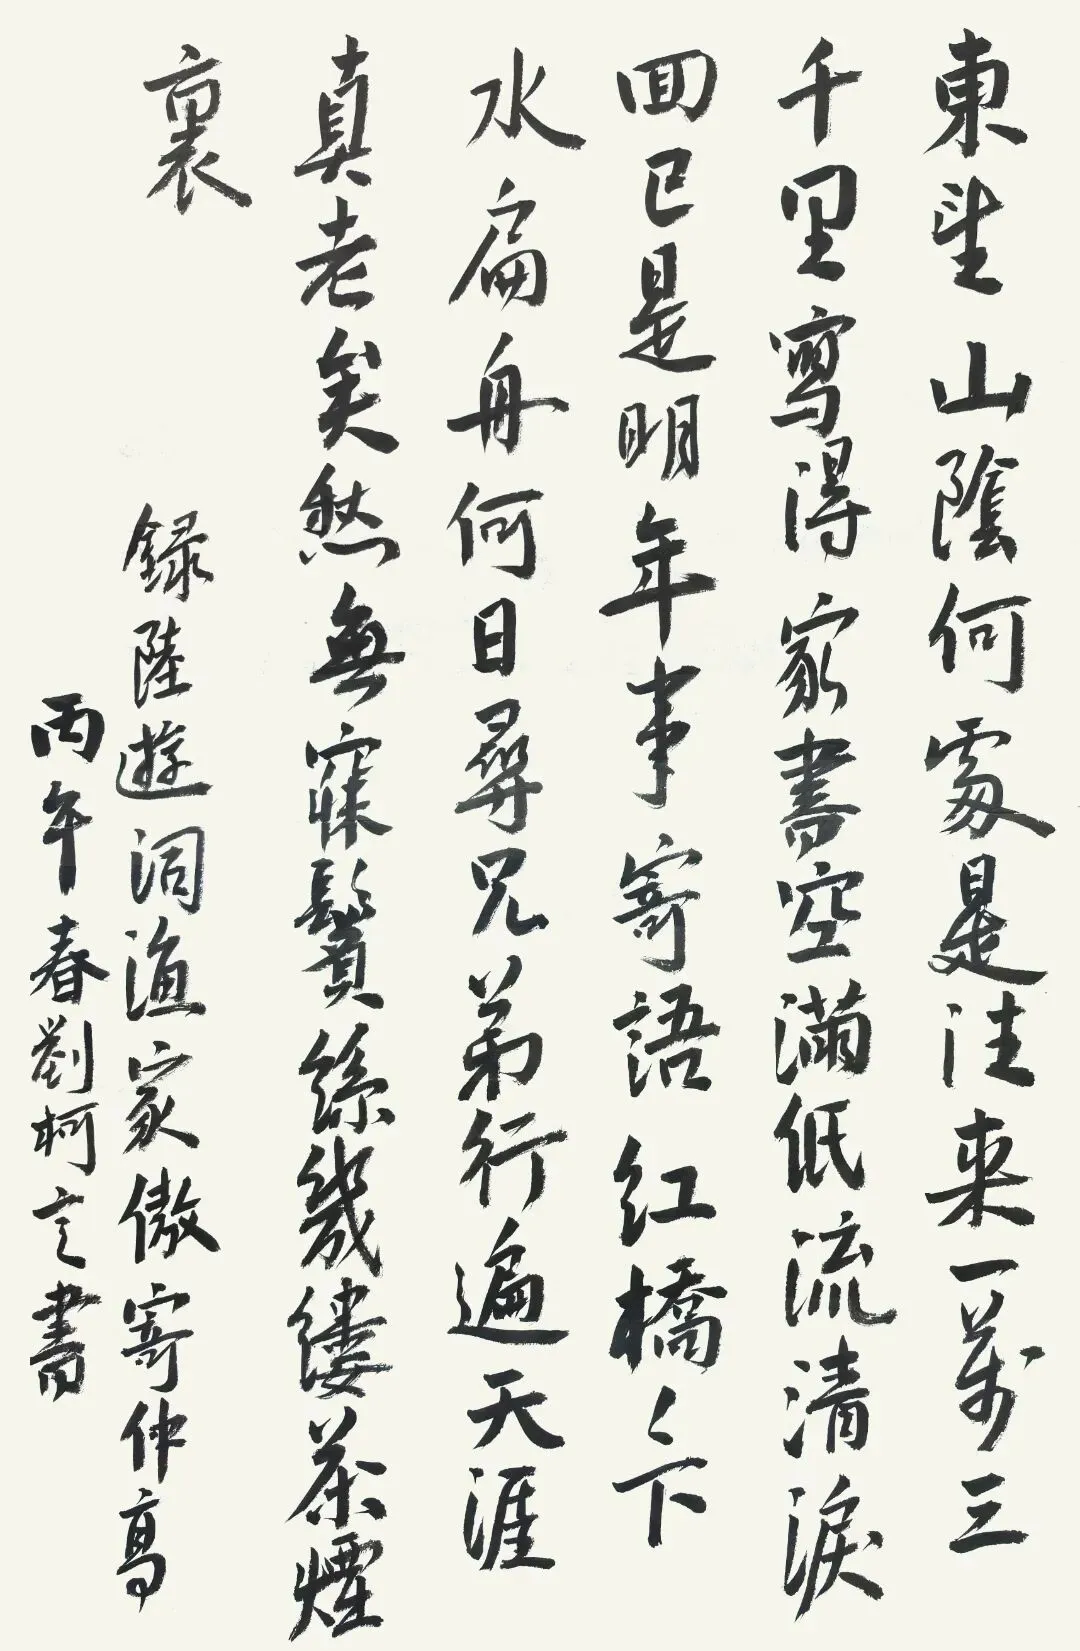 東望山陰何處是往来一萬三
千里寫得家書空滿低流清淚
回已是明年事寄語红橋々下
水扁舟何日尋兄弟行遍天涯
真老矣愁無寐鬢絲幾縷茶煙
裏
録陸遊词漁家傲寄仲高
丙午春劉柯言書